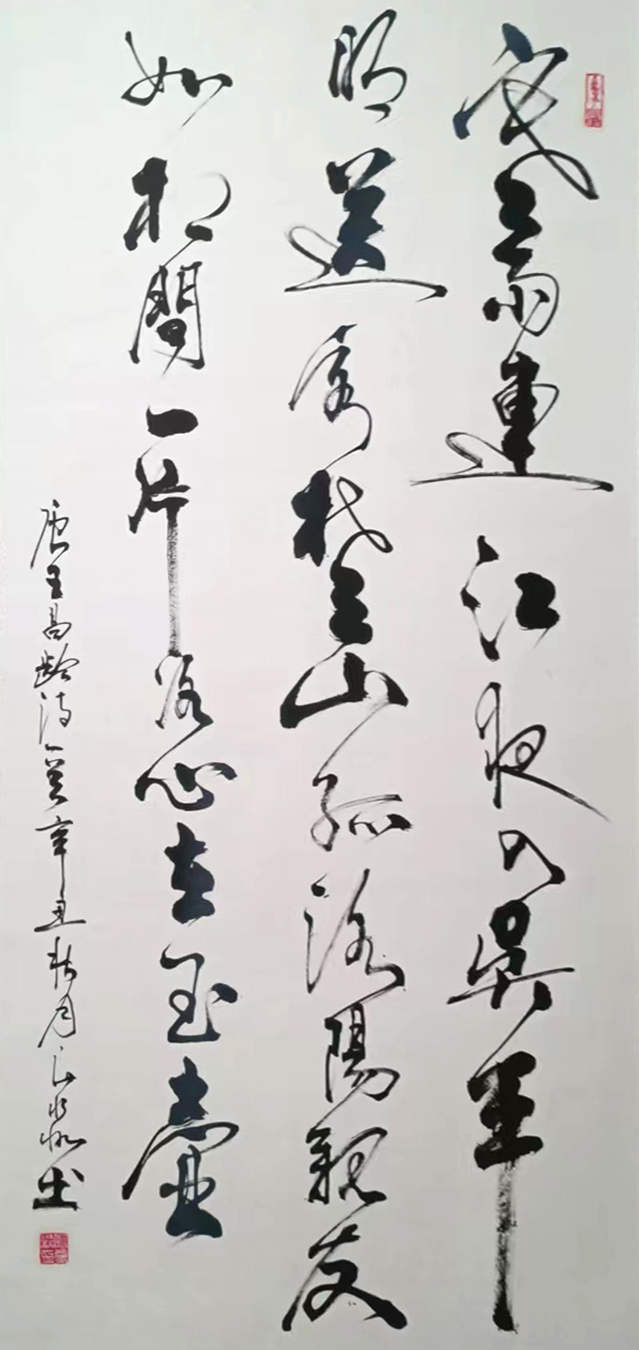 寒雨連江夜入吳平
明送客楚山孤洛陽親友
如相問一片冰心在玉壺
唐王昌齡詩一首辛丑秋月書